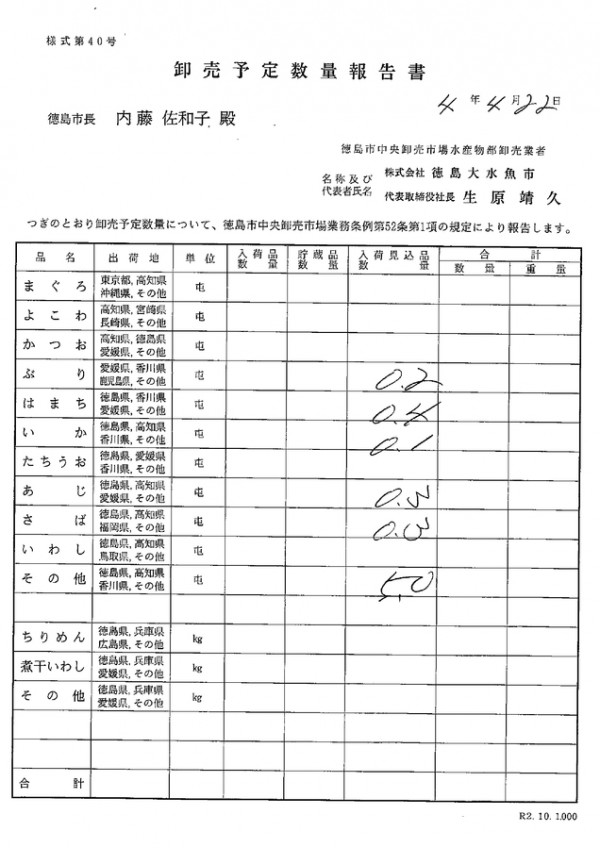 様式第40号
卸売予定数量報告書
4年4月22日
徳島市長 内藤 佐和子 殿
徳島市中央卸売市場水産物部卸売業者
名称及び 株式会社 徳島大水魚市
代表者氏名 代表取締役社長 生原靖久
つぎのとおり卸売予定数量について、徳島市中央卸売市場業務条例第52条第1項の規定により報告します。
品名 出荷地 単位 入荷品数量 貯蔵品数量 入荷見込品数量 合計 数量 重量
まぐろ 東京都, 高知県 沖縄県, その他 屯
よこわ 高知県, 宮崎県 長崎県, その他 屯
かつお 高知県, 徳島県 愛媛県, その他 屯
ぶり 愛媛県, 香川県 鹿児島県, その他 屯 0.2
はまち 徳島県, 香川県 愛媛県, その他 屯 0.4
いか 徳島県, 高知県 香川県, その他 屯 0.1
たちうお 徳島県, 愛媛県 香川県, その他 屯
あじ 徳島県, 高知県 愛媛県, その他 屯 0.3
さば 徳島県, 高知県 福岡県, その他 屯 0.3
いわし 徳島県, 高知県 鳥取県, その他 屯
その他 徳島県, 高知県 香川県, その他 屯 5.0
ちりめん 徳島県, 兵庫県 広島県, その他 kg
煮干いわし 徳島県, 兵庫県 愛媛県, その他 kg
その他 徳島県, 兵庫県 愛媛県, その他 kg
合計
R2. 10. 1.000